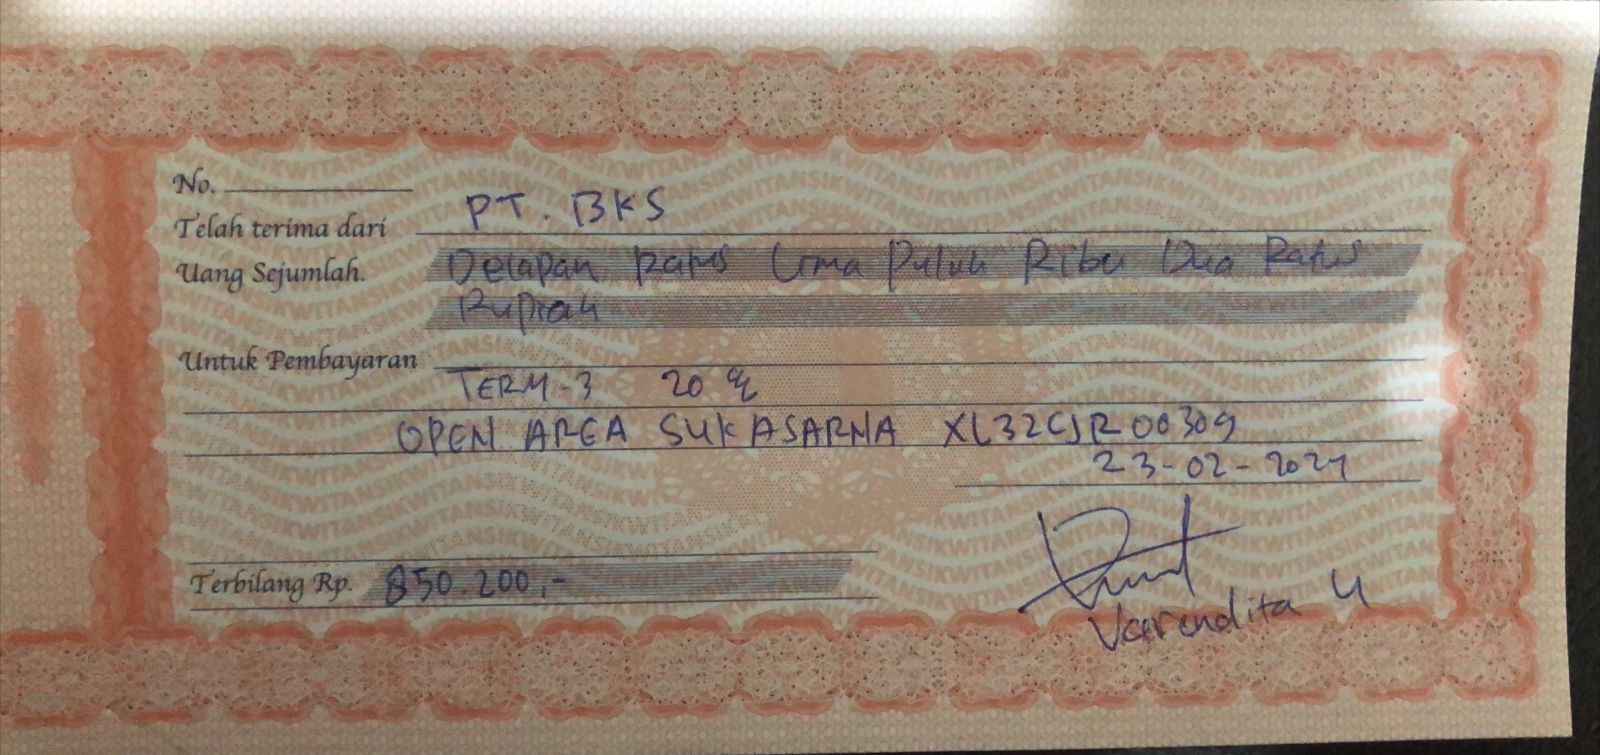 No.
Telah terima dari PT. BKS
Uang Sejumlah. Delapan Ratus Lima Puluh Ribu Dua Ratus
Rupiah
Untuk Pembayaran
TERM-3 20 %
OPEN AREA SUKASARNA XL32CJR00309
23-02-2021
Terbilang Rp. 850.200,-